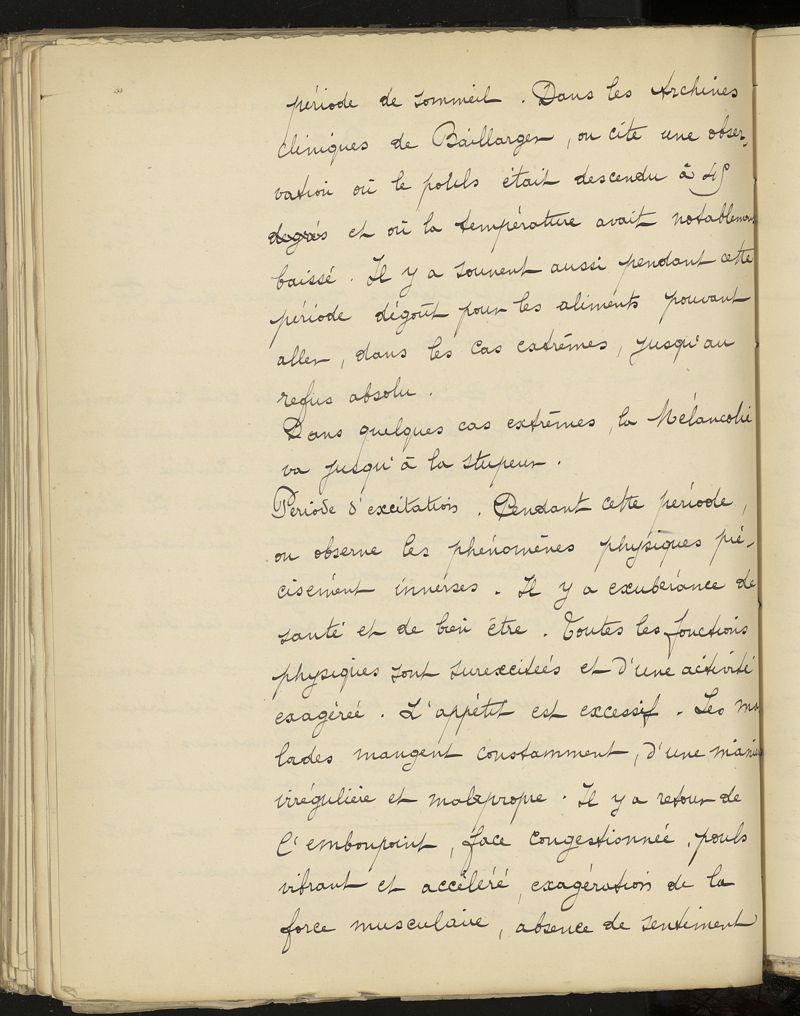 période de sommeil. Dans les Archives
cliniques de Baillarger, on cite une obser-
vation où le pouls était descendu à
degrés et où la température avait notablement
baissé. Il y a souvent aussi pendant cette
période dégoût pour les aliments pouvant
aller, dans les cas extrêmes, jusqu'au
refus absolu.
Dans quelques cas extrêmes, la Mélancolie
va jusqu'à la stupeur.
Période d'excitation. Pendant cette période,
on observe les phénomènes physiques pré-
cisément inverses. Il y a exubérance de
santé et de bien être. Toutes les fonctions
physiques sont surexcitées et d'une activité
exagérée. L'appétit est excessif. Les ma
lades mangent constamment, d'une manière
irrégulière et malpropre. Il y a retour de
l'embonpoint, face congestionnée, pouls
vibrant et accéléré, exagération de la
force musculaire, absence de sentiment